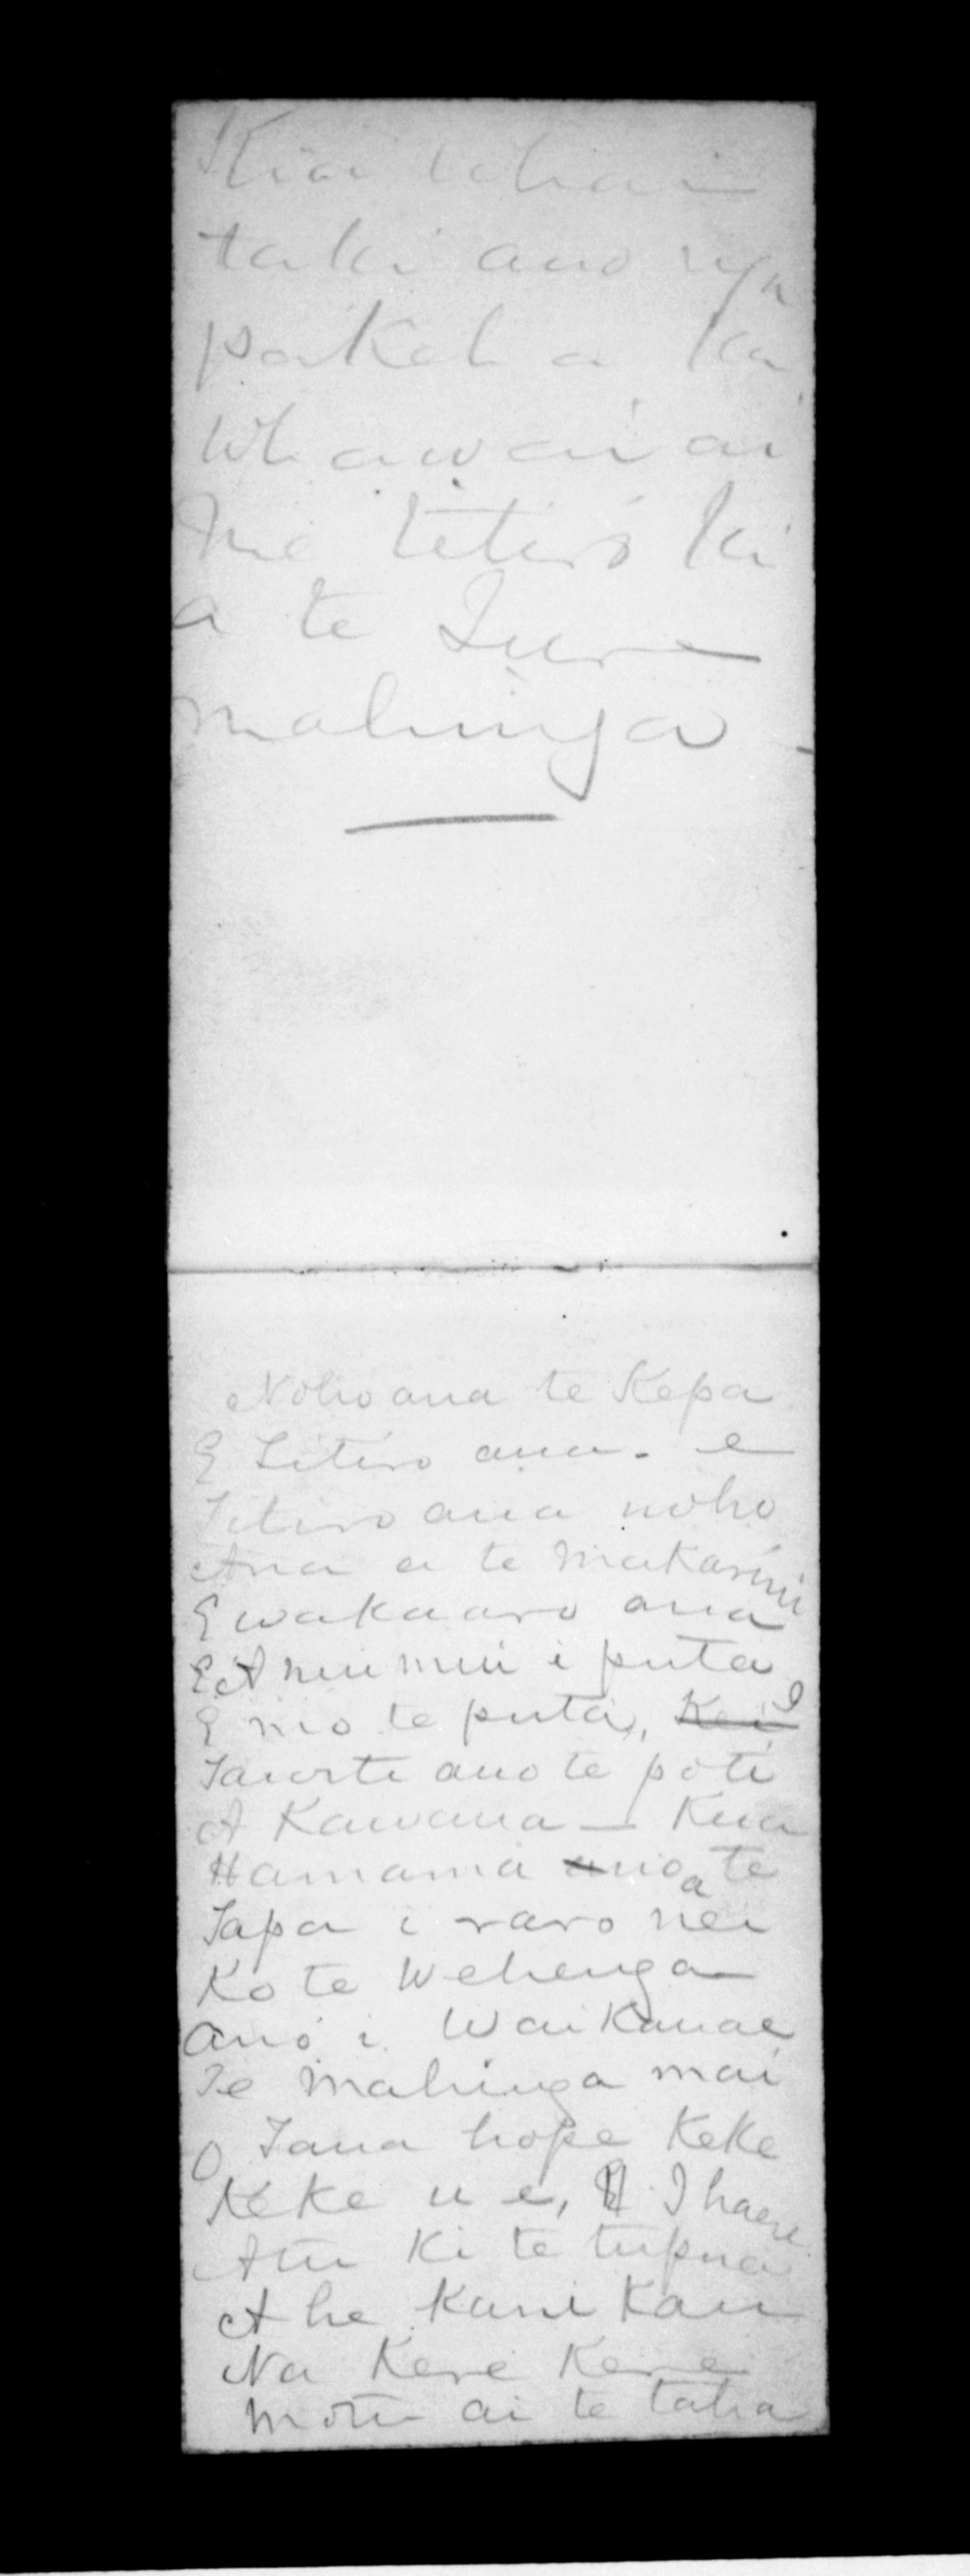 taki ano nga
pakeha ka
whawai ai
me titiro ki
a te Iura
mahinga -
Noho ana te Kepa
E Titiro ana. e
Titiro ana noho
Ana a te Makarini
E wakaaro ana
E A nuinui i puta
E mo te puta, Kei I
ano te poti
A Kawana - Kua
Hamama ana te
Tapa i raro nei
Ko te Wehenga
Ano i Waikanae
Te Mahinga mai
O Tana hope Keke
Keke u e, I haere
Atu Ki te tupua
A he Kani Kau
Na Kere Kere
Motu ai te taha